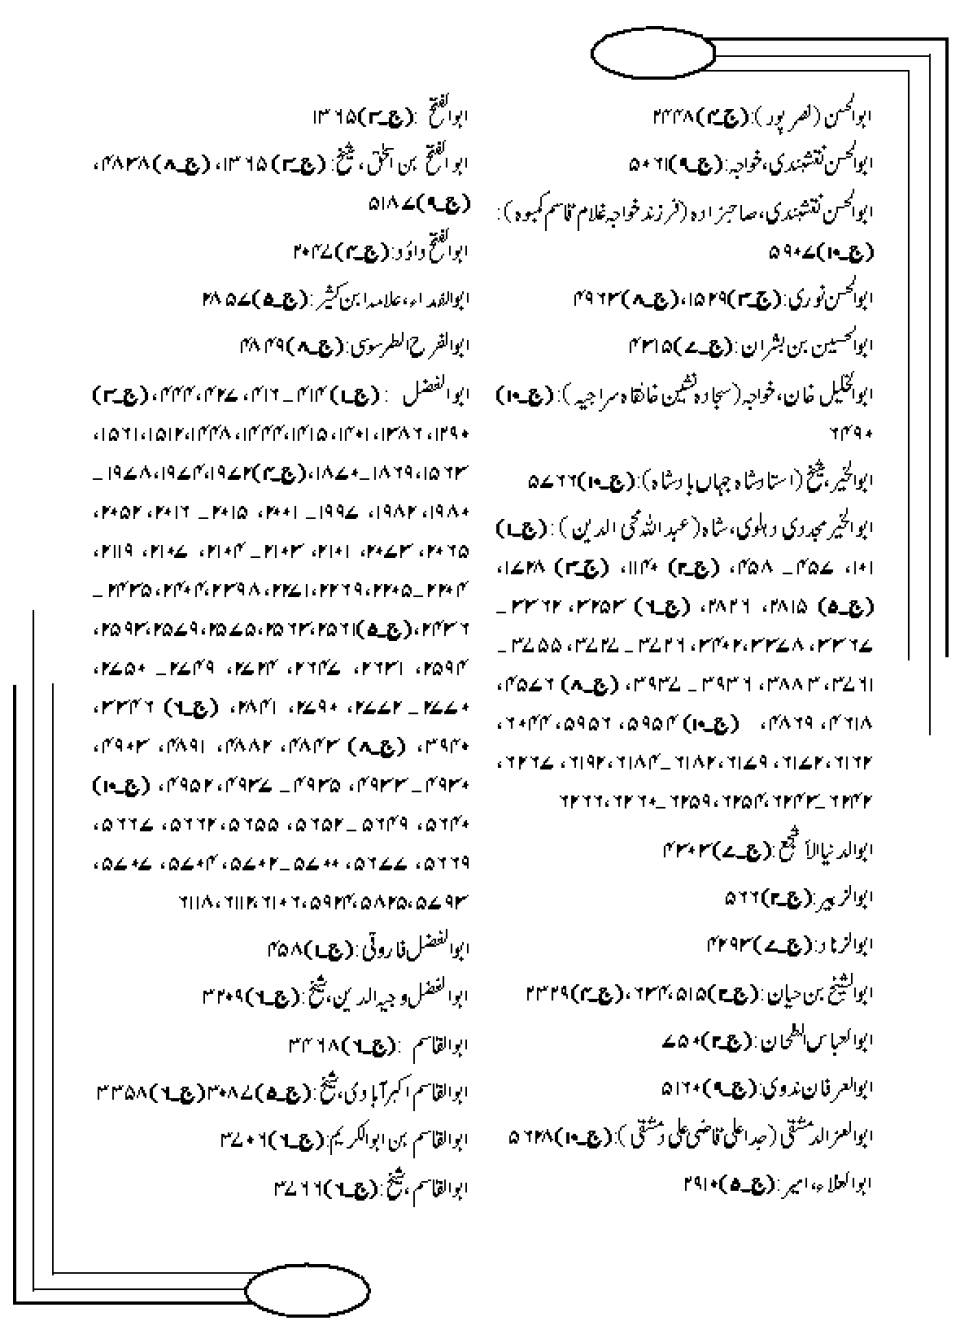 ابوالحسن (نصر پور): (ج۔۴)۲۴۴۸
ابوالحسن نقشبندی، خواجہ: (ج۔۹)۵۰۶۱
ابوالحسن نقشبندی، صاحبزادہ (فرزند خواجہ غلام قاسم کمبوہ):
(ج۔۱۰)۵۹۰۷
ابوالحسن نوری: (ج۔۳)۱۵۲۹، (ج۔۸)۴۹۶۳
ابوالحسین بن بشران: (ج۔۷)۴۳۱۵
ابوالخلیل خان، خواجہ (سجادہ نشین خانقاہ سراجیہ): (ج۔۱۰)
۶۴۹۰
ابوالخیر، شیخ (استاد شاہ جہاں بادشاہ): (ج۔۱۰)۵۷۶۶
ابوالخیر مجددی دہلوی، شاہ (عبداللہ محی الدین): (ج۔۱)
۱۰۱، ۴۵۷۔ ۴۵۸، (ج۔۲) ۱۱۴۰، (ج۔۳) ۱۷۲۸،
(ج۔۵) ۲۸۱۵، ۲۸۲۶، (ج۔۶) ۳۲۵۳، ۳۳۶۲۔
۳۳۶۷، ۳۳۷۸، ۳۴۰۲، ۳۷۲۶۔ ۳۷۲۷، ۳۷۵۵۔
۳۷۶۱، ۳۸۸۳، ۳۹۳۶۔ ۳۹۳۷، (ج۔۸) ۴۵۷۶،
۴۶۱۸، ۴۸۶۹، (ج۔۱۰) ۵۹۵۴، ۵۹۵۶، ۶۰۴۴،
۶۱۶۲، ۶۱۷۲، ۶۱۷۹، ۶۱۸۲۔۶۱۸۴، ۶۱۹۲، ۶۲۶۷،
۶۲۴۲۔۶۲۴۳، ۶۲۵۴، ۶۲۵۹۔ ۶۲۶۰، ۶۲۶۶
ابوالدنیا الاشجع: (ج۔۷)۴۳۰۳
ابوالزبیر: (ج۔۲)۵۶۶
ابوالزناد: (ج۔۷)۴۲۹۳
ابوالشیخ بن حیان: (ج۔۲)۵۱۵، ۶۳۴، (ج۔۴)۲۳۲۹
ابوالعباس الطحان: (ج۔۲)۷۵۰
ابوالعرفان ندوی: (ج۔۹)۵۱۶۰
ابوالعز الدمشقی (جد اعلیٰ قاضی علی دمشقی): (ج۔۱۰)۵۶۲۸
ابوالعلاء، امیر: (ج۔۵)۲۹۱۰
ابوالفتح: (ج۔۳)۱۳۶۵
ابوالفتح بن اسحٰق، شیخ: (ج۔۳)۱۳۶۵، (ج۔۸)۴۸۳۸،
(ج۔۹)۵۱۸۷
ابوالفتح داؤد: (ج۔۴)۲۰۴۷
ابوالفداء، علامہ ابن کثیر: (ج۔۵)۲۸۵۷
ابوالفرح الطرسوسی: (ج۔۸)۴۸۴۹
ابوالفضل: (ج۔۱)۴۱۴۔ ۴۱۶، ۴۲۷، ۴۴۴، (ج۔۳)
۱۲۹۰، ۱۳۸۶، ۱۴۰۱، ۱۴۱۵، ۱۴۴۴، ۱۴۴۸، ۱۵۱۲، ۱۵۶۱،
۱۵۶۳، ۱۸۶۹۔۱۸۷۰، (ج۔۴)۱۹۷۲، ۱۹۷۴، ۱۹۷۸۔
۱۹۸۰، ۱۹۸۲، ۱۹۹۷۔ ۲۰۰۱، ۲۰۱۵۔ ۲۰۱۶، ۲۰۵۲،
۲۰۶۵، ۲۰۷۳، ۲۱۰۱، ۲۱۰۳۔ ۲۱۰۴، ۲۱۰۷، ۲۱۱۹،
۲۲۰۴۔۲۲۰۵، ۲۲۶۹، ۲۲۷۱، ۲۳۹۸، ۲۴۰۴، ۲۴۳۵۔
۲۴۳۶، (ج۔۵)۲۵۶۱، ۲۵۶۳، ۲۵۷۵، ۲۵۷۹، ۲۵۹۳،
۲۵۹۴، ۲۶۳۱، ۲۶۴۷، ۲۷۲۴، ۲۷۴۹۔ ۲۷۵۰،
۲۷۷۰۔ ۲۷۷۲، ۲۷۹۰، ۲۸۴۱، (ج۔۶) ۳۳۴۶،
۳۹۴۰، (ج۔۸) ۴۸۴۳، ۴۸۸۲، ۴۸۹۱، ۴۹۰۳،
۴۹۳۰۔ ۴۹۳۳، ۴۹۳۵۔ ۴۹۳۷، ۴۹۵۲، (ج۔۱۰)
۵۶۴۰، ۵۶۴۹۔ ۵۶۵۲، ۵۶۵۵، ۵۶۶۲، ۵۶۶۷،
۵۶۶۹، ۵۶۷۷، ۵۷۰۰۔۵۷۰۲، ۵۷۰۴، ۵۷۰۷،
۵۷۹۳، ۵۸۲۵، ۵۹۲۴، ۶۱۰۶، ۶۱۱۲، ۶۱۱۸
ابوالفضل فاروقی: (ج۔۱)۴۵۸
ابوالفضل وجیہ الدین، شیخ: (ج۔۶)۳۲۰۹
ابوالقاسم: (ج۔۶)۳۴۶۸
ابوالقاسم اکبرآبادی، شیخ: (ج۔۵)۳۰۸۷(ج۔۶)۳۳۵۸
ابوالقاسم بن ابوالکریم: (ج۔۶)۳۷۰۶
ابوالقاسم، شیخ: (ج۔۶)۳۷۶۶